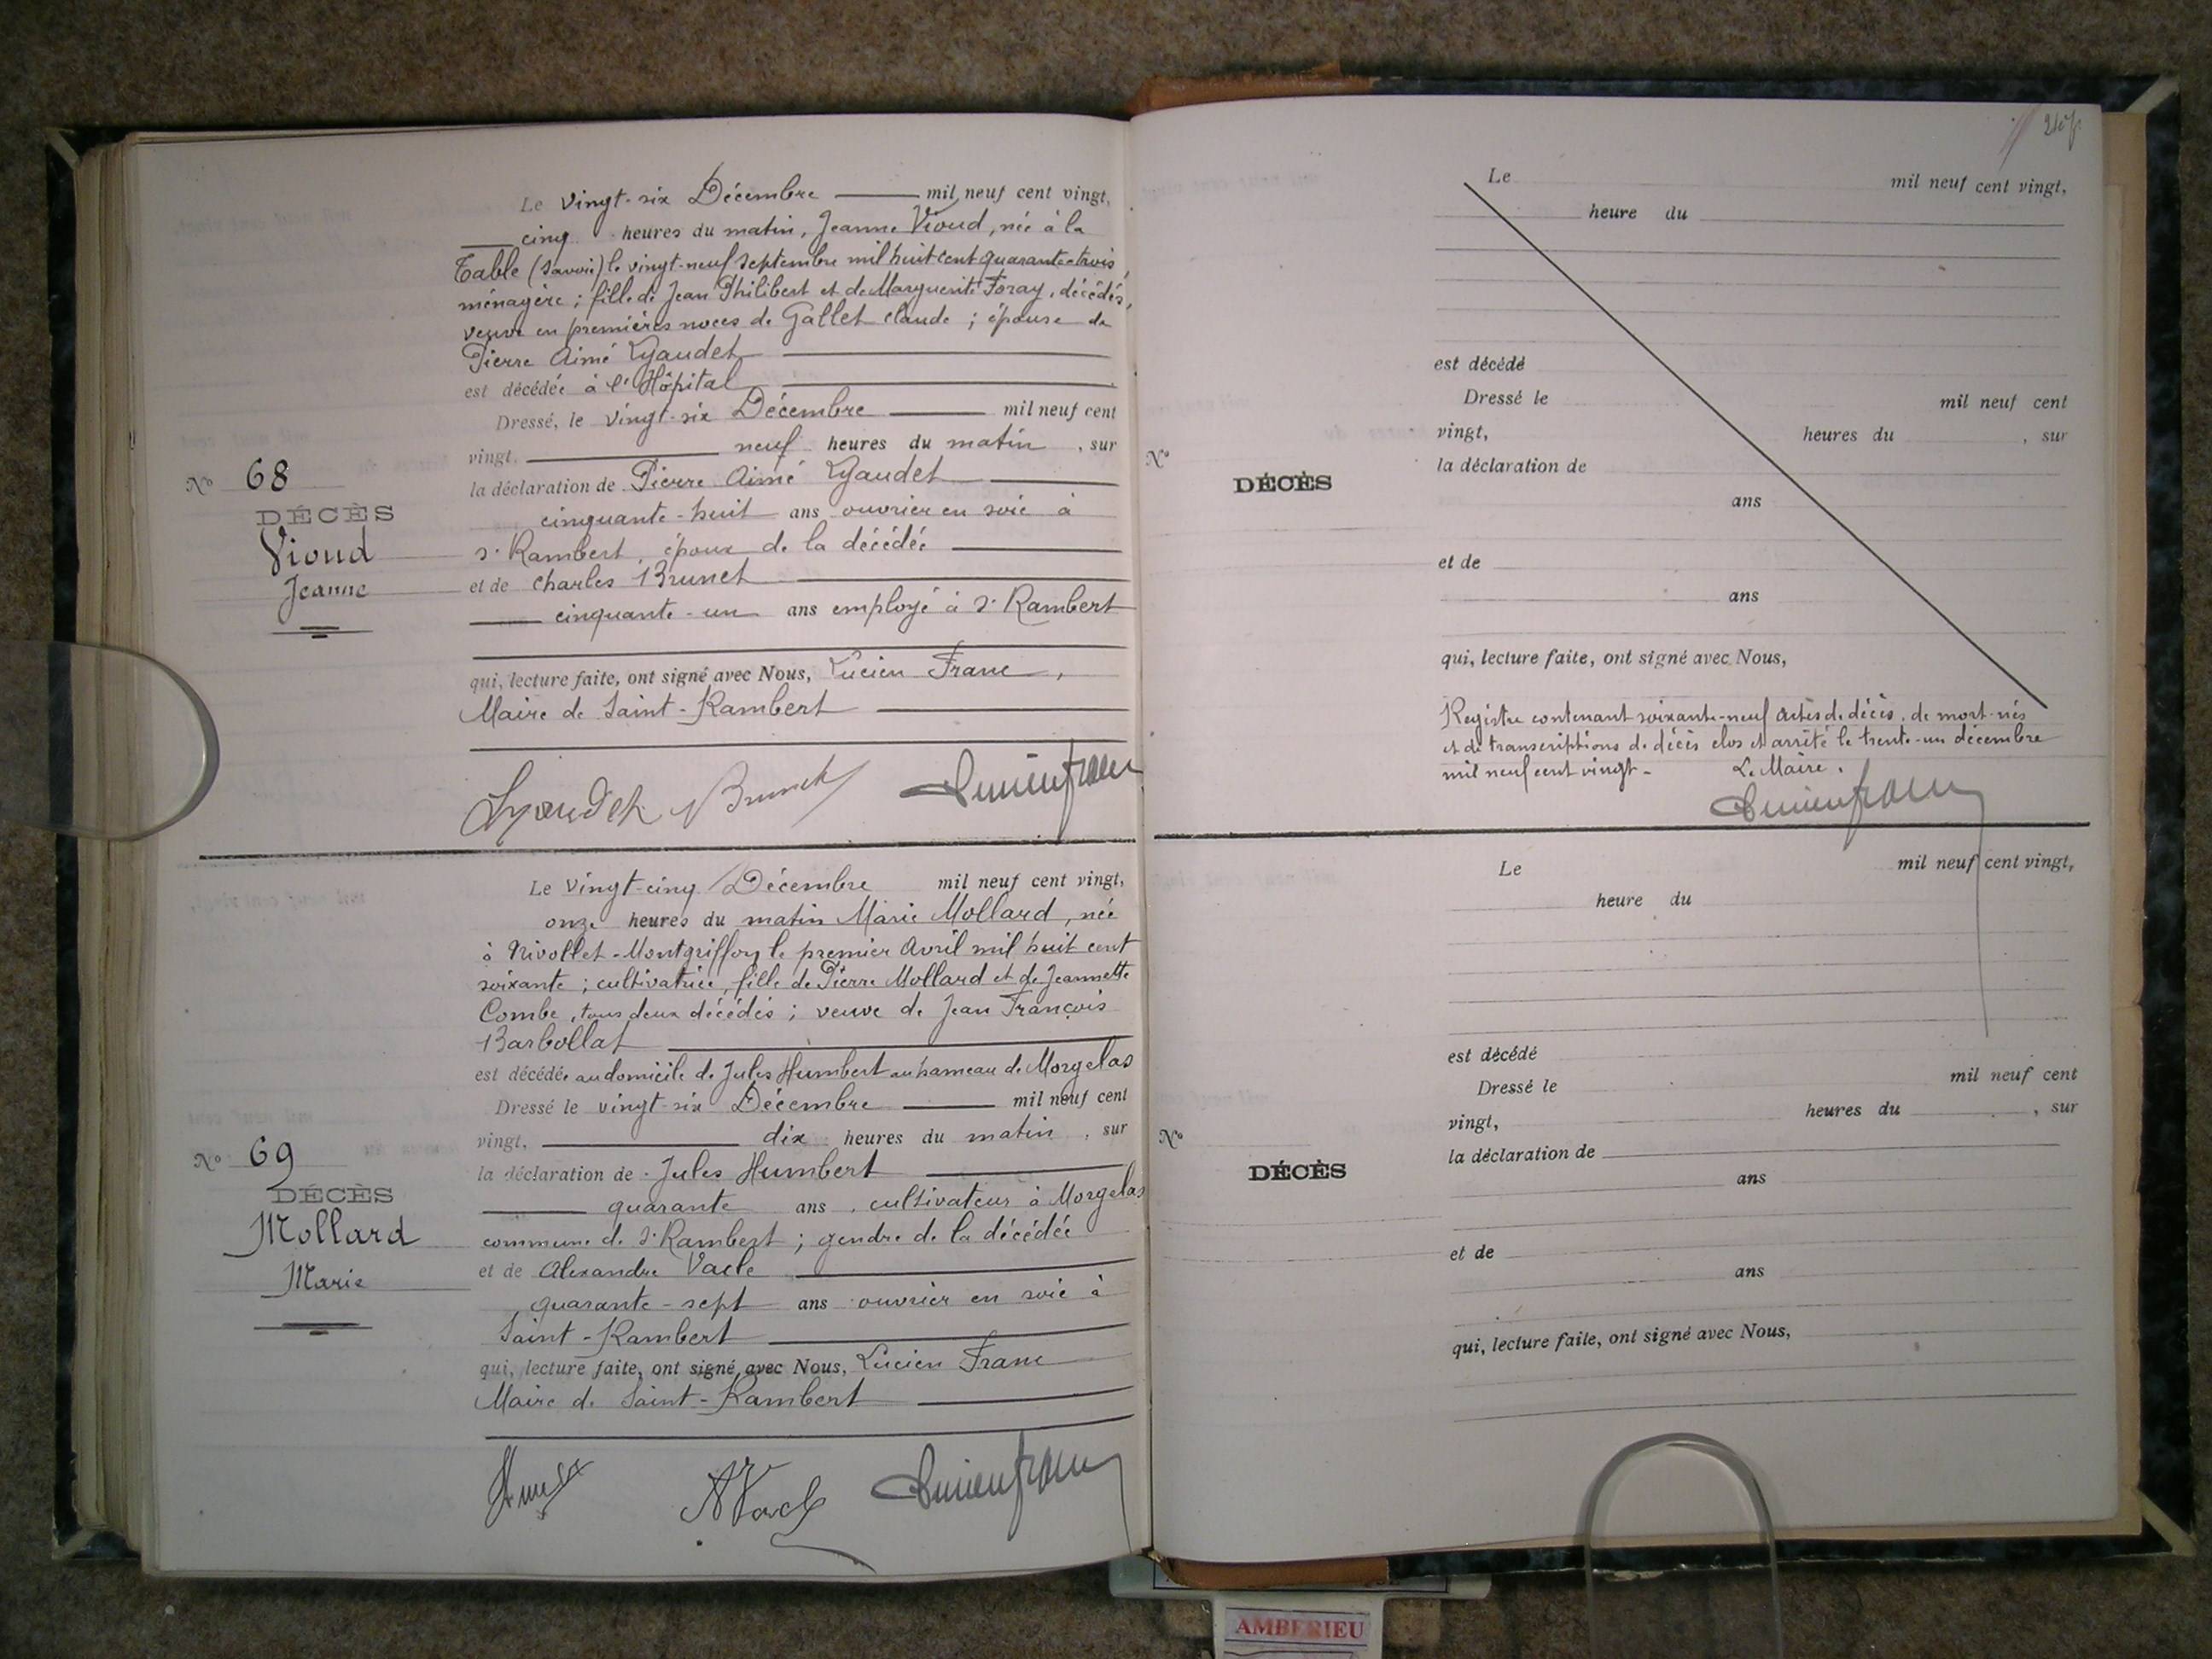 Le vingt-six Décembre mil neuf cent vingt,
cinq heures du matin, Jeanne Vioud, née à la
Table (Savoie) le vingt-neuf Septembre mil huit cent quarante trois,
ménagère ; fille de Jean Philibert et de Marguerite Foray, décédés,
veuve en premières noces de Gallet Claude ; épouse de
Pierre Aimé Lyaudet
est décédée à l'Hôpital
Dressé, le vingt-six Décembre mil neuf cent
vingt, neuf heures du matin, sur
la déclaration de Pierre Aimé Lyaudet
cinquante-huit ans ouvrier en soie à
St Rambert, époux de la décédée
et de Charles Brunet
cinquante-un ans employé à St Rambert
qui, lecture faite, ont signé avec Nous, Lucien Franc,
Maire de Saint-Rambert
Lyaudet Brunet Lucien Franc
No 68
DÉCÈS
Vioud
Jeanne
Le vingt-cinq Décembre mil neuf cent vingt,
onze heures du matin Marie Mollard, née
à Nivollet-Montgriffon le premier Avril mil huit cent
soixante ; cultivatrice, fille de Pierre Mollard et de Jeannette
Combe, tous deux décédés ; veuve de Jean François
Barbollat
est décédée au domicile de Jules Humbert au hameau de Morgelas
Dressé le vingt-six Décembre mil neuf cent
vingt, dix heures du matin, sur
la déclaration de Jules Humbert
quarante ans, cultivateur à Morgelas
commune de St Rambert ; gendre de la décédée
et de Alexandre Vacle
quarante-sept ans ouvrier en soie à
Saint-Rambert
qui, lecture faite, ont signé avec Nous, Lucien Franc
Maire de Saint-Rambert
A Vacle Lucien Franc
No 69
DÉCÈS
Mollard
Marie
Le mil neuf cent vingt,
heure du
est décédé
Dressé le mil neuf cent
vingt, heures du , sur
la déclaration de
ans
et de
ans
qui, lecture faite, ont signé avec Nous,
No
DÉCÈS
Registre contenant soixante-neuf actes de décès, de mort-nés
et de transcriptions de décès clos et arrêté le trente-un décembre
mil neuf cent vingt - Le Maire.
Lucien Franc
Le mil neuf cent vingt,
heure du
est décédé
Dressé le mil neuf cent
vingt, heures du , sur
la déclaration de
ans
et de
ans
qui, lecture faite, ont signé avec Nous,
No
DÉCÈS
AMBERIEU